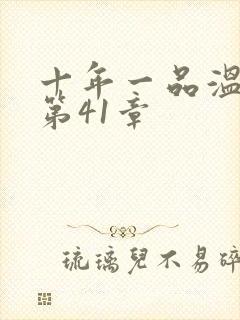 十年一品溫
第41章
琉璃兒不易碎